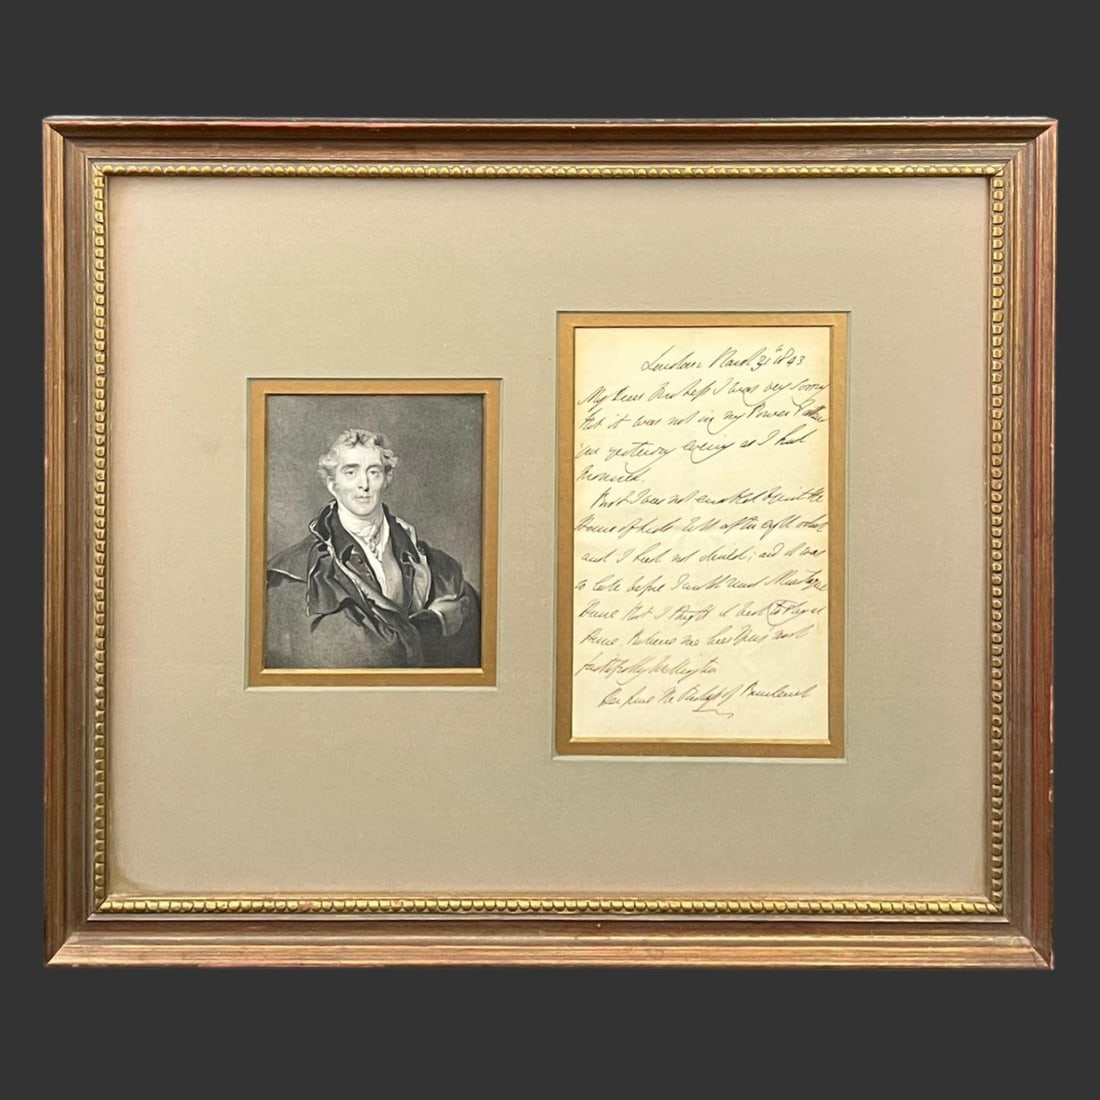 London March 31st 1843
My Dear Duchess I was very sorry
that it was not in my Power to
you yesterday evening as I had
promised.
But I was not enabled to quit the
House of Lords till after eight o'clock
and I had not dined; and it was
so late before I could reach
House that I thought it best to
Believe me
faithfully Wellington
Her Grace The Duchess of Buccleuch